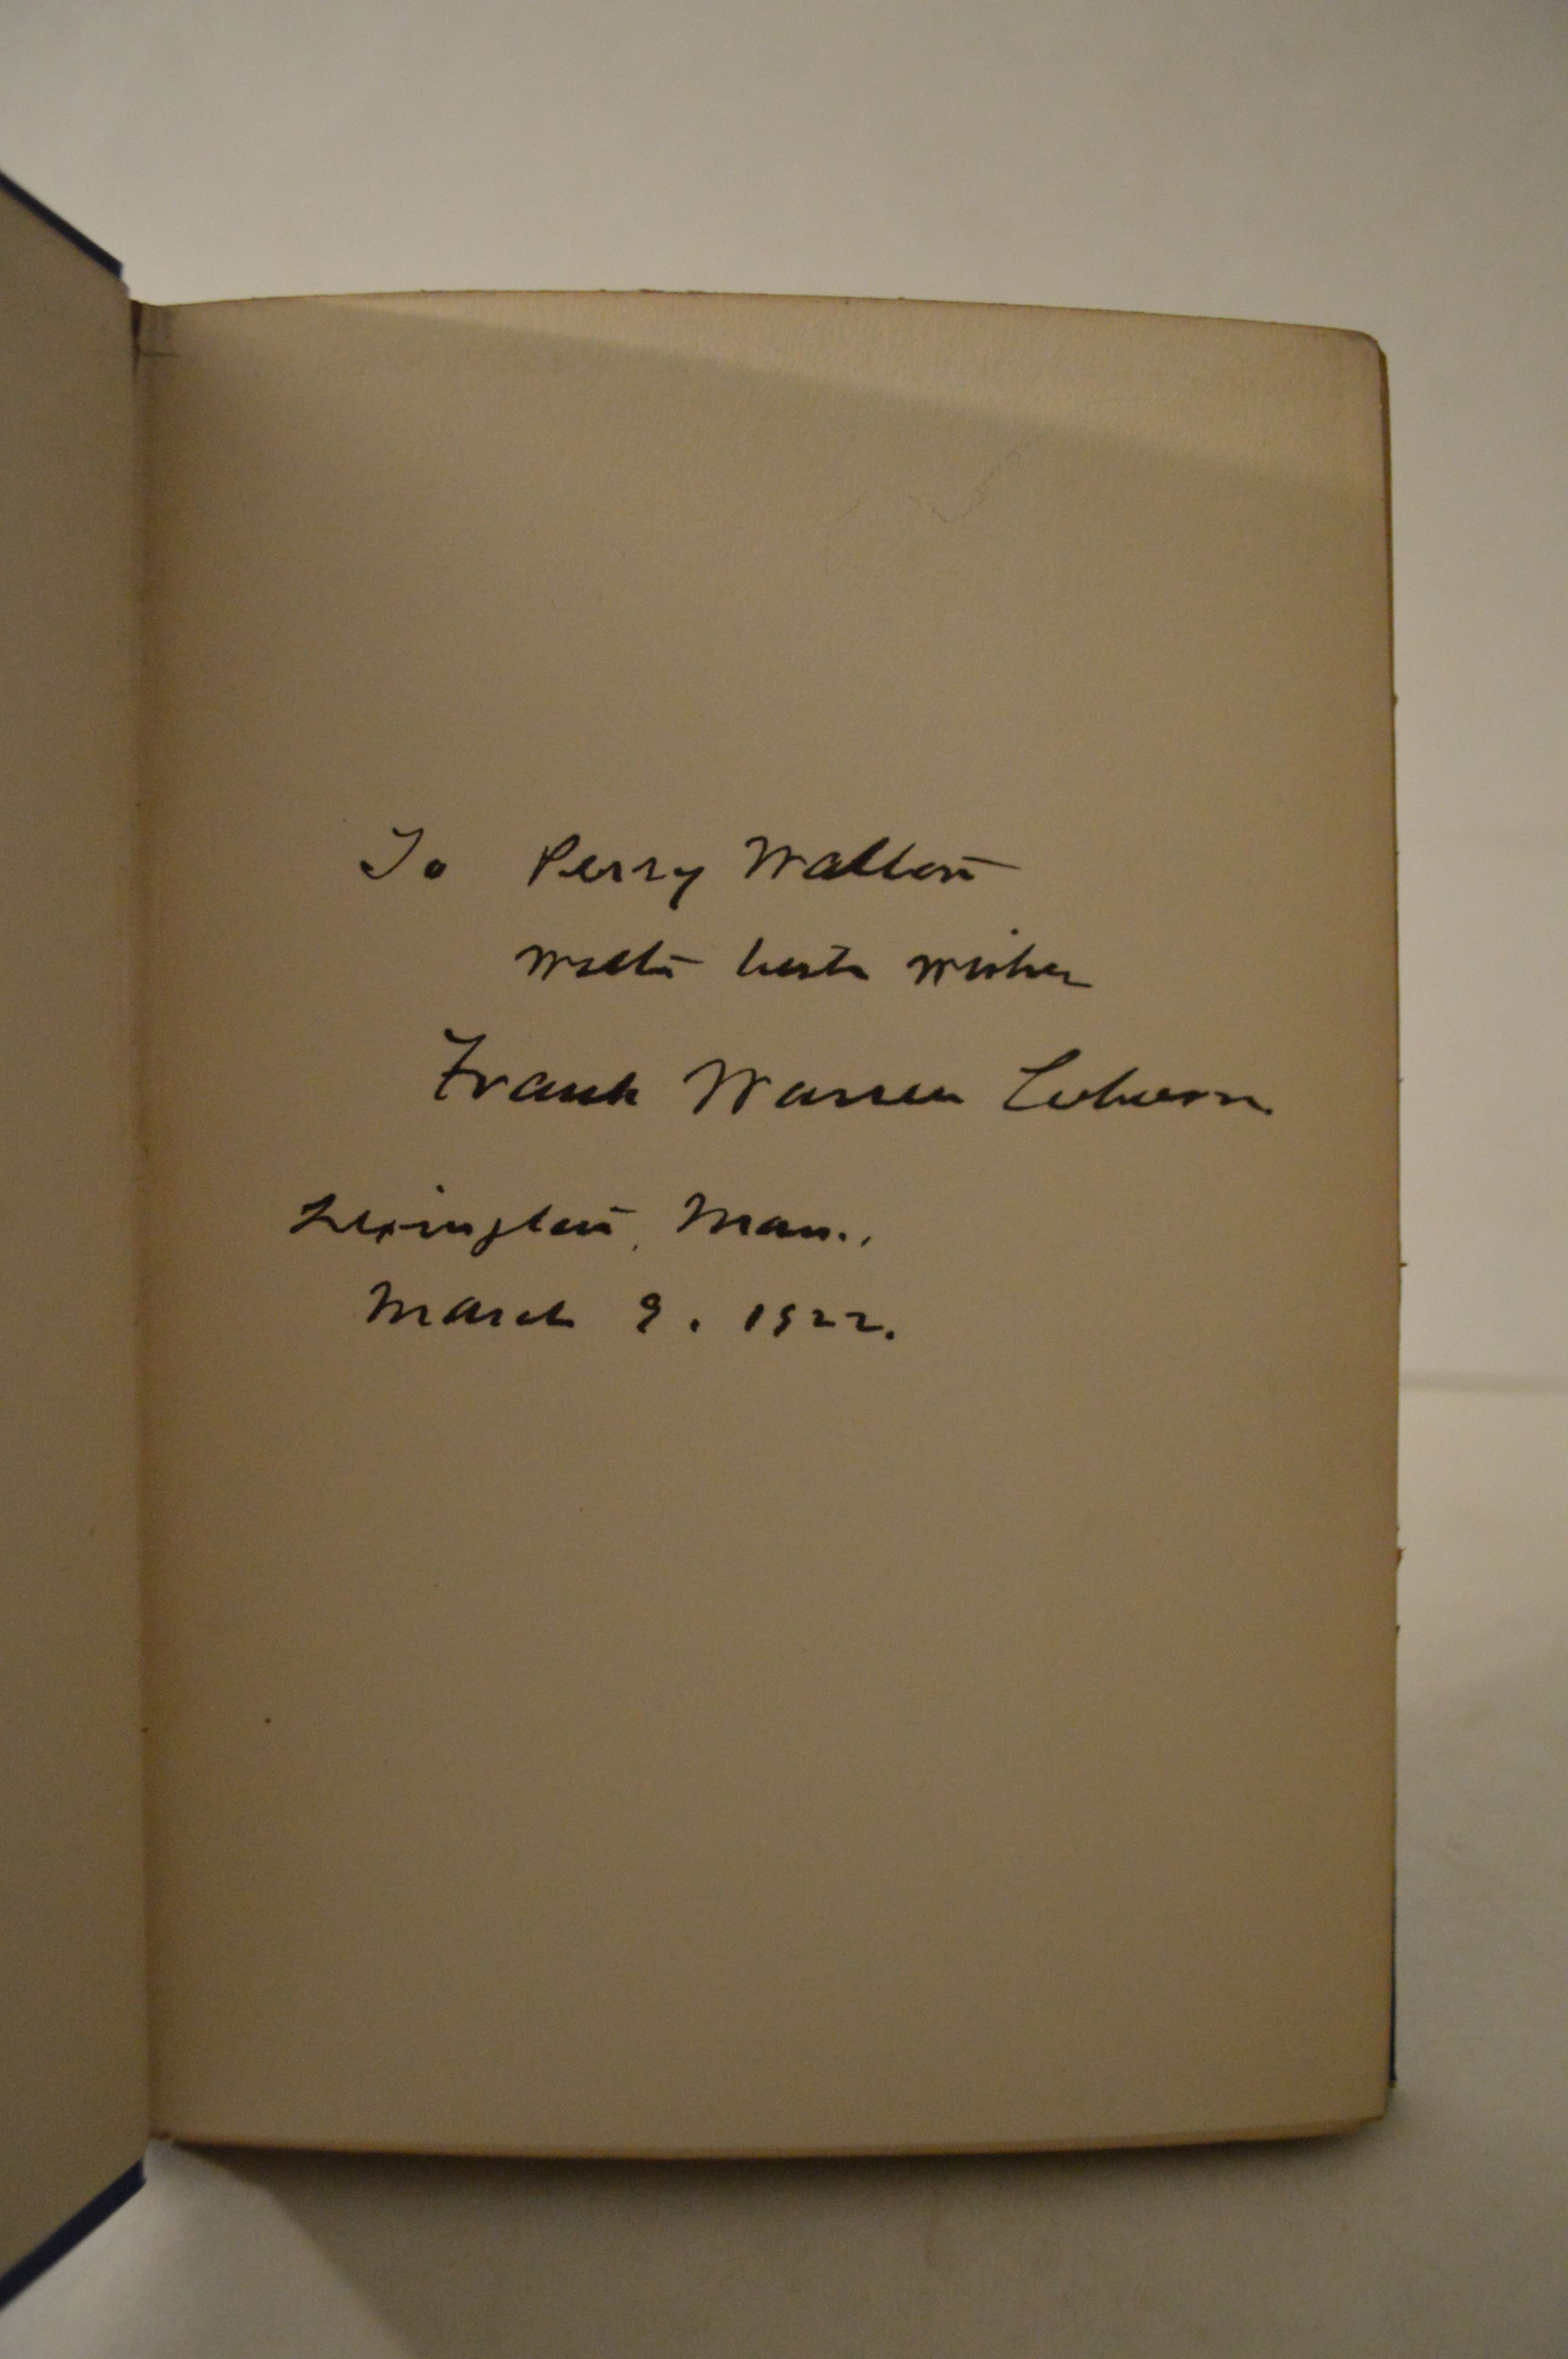 To Perry Walton
with best wishes
Frank Warren Coburn.
Lexington, Mass.,
March 9. 1922.